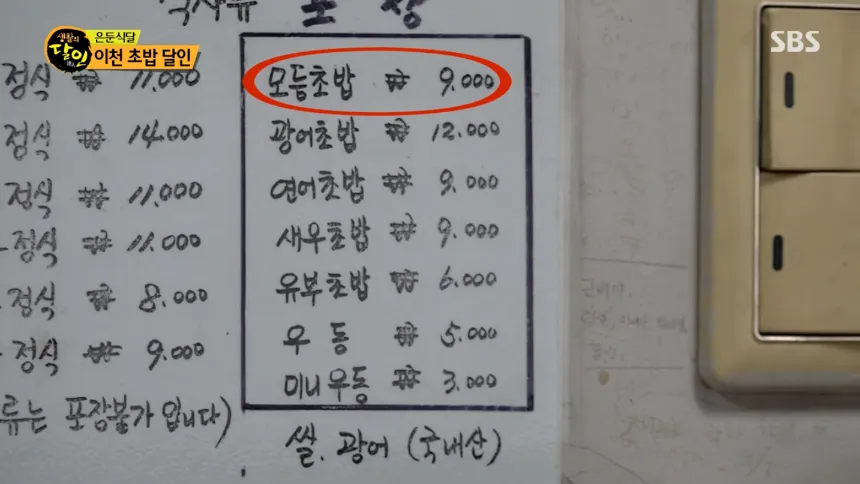 생활의 달인
은둔식달
이천 초밥 달인
SBS
포장
정식 ₩ 11.000
정식 ₩ 14.000
정식 ₩ 11.000
정식 ₩ 11.000
정식 ₩ 8.000
정식 ₩ 9.000
류는 포장불가 입니다)
모듬초밥 ₩ 9.000
광어초밥 ₩ 12.000
연어초밥 ₩ 9.000
새우초밥 ₩ 9.000
유부초밥 ₩ 6.000
우동 ₩ 5.000
미니우동 ₩ 3.000
쌀. 광어 (국내산)